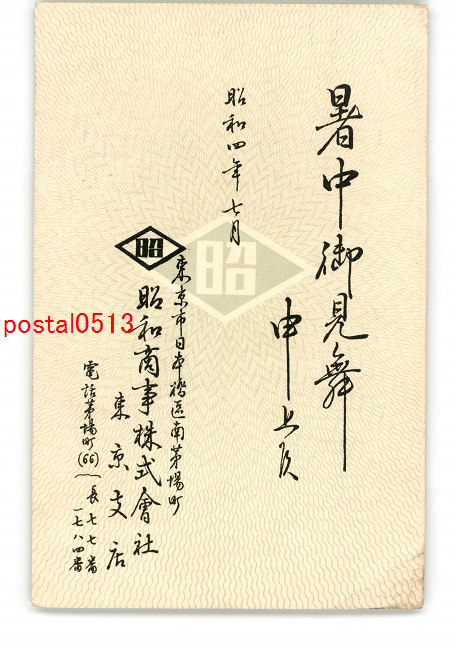 暑中御見舞
申上候
昭和四年七月
昭
昭
東京市日本橋區南茅場町
昭和商事株式會社
東京支店
電話茅場町(66)
長七七番
一七八四番
postal0513